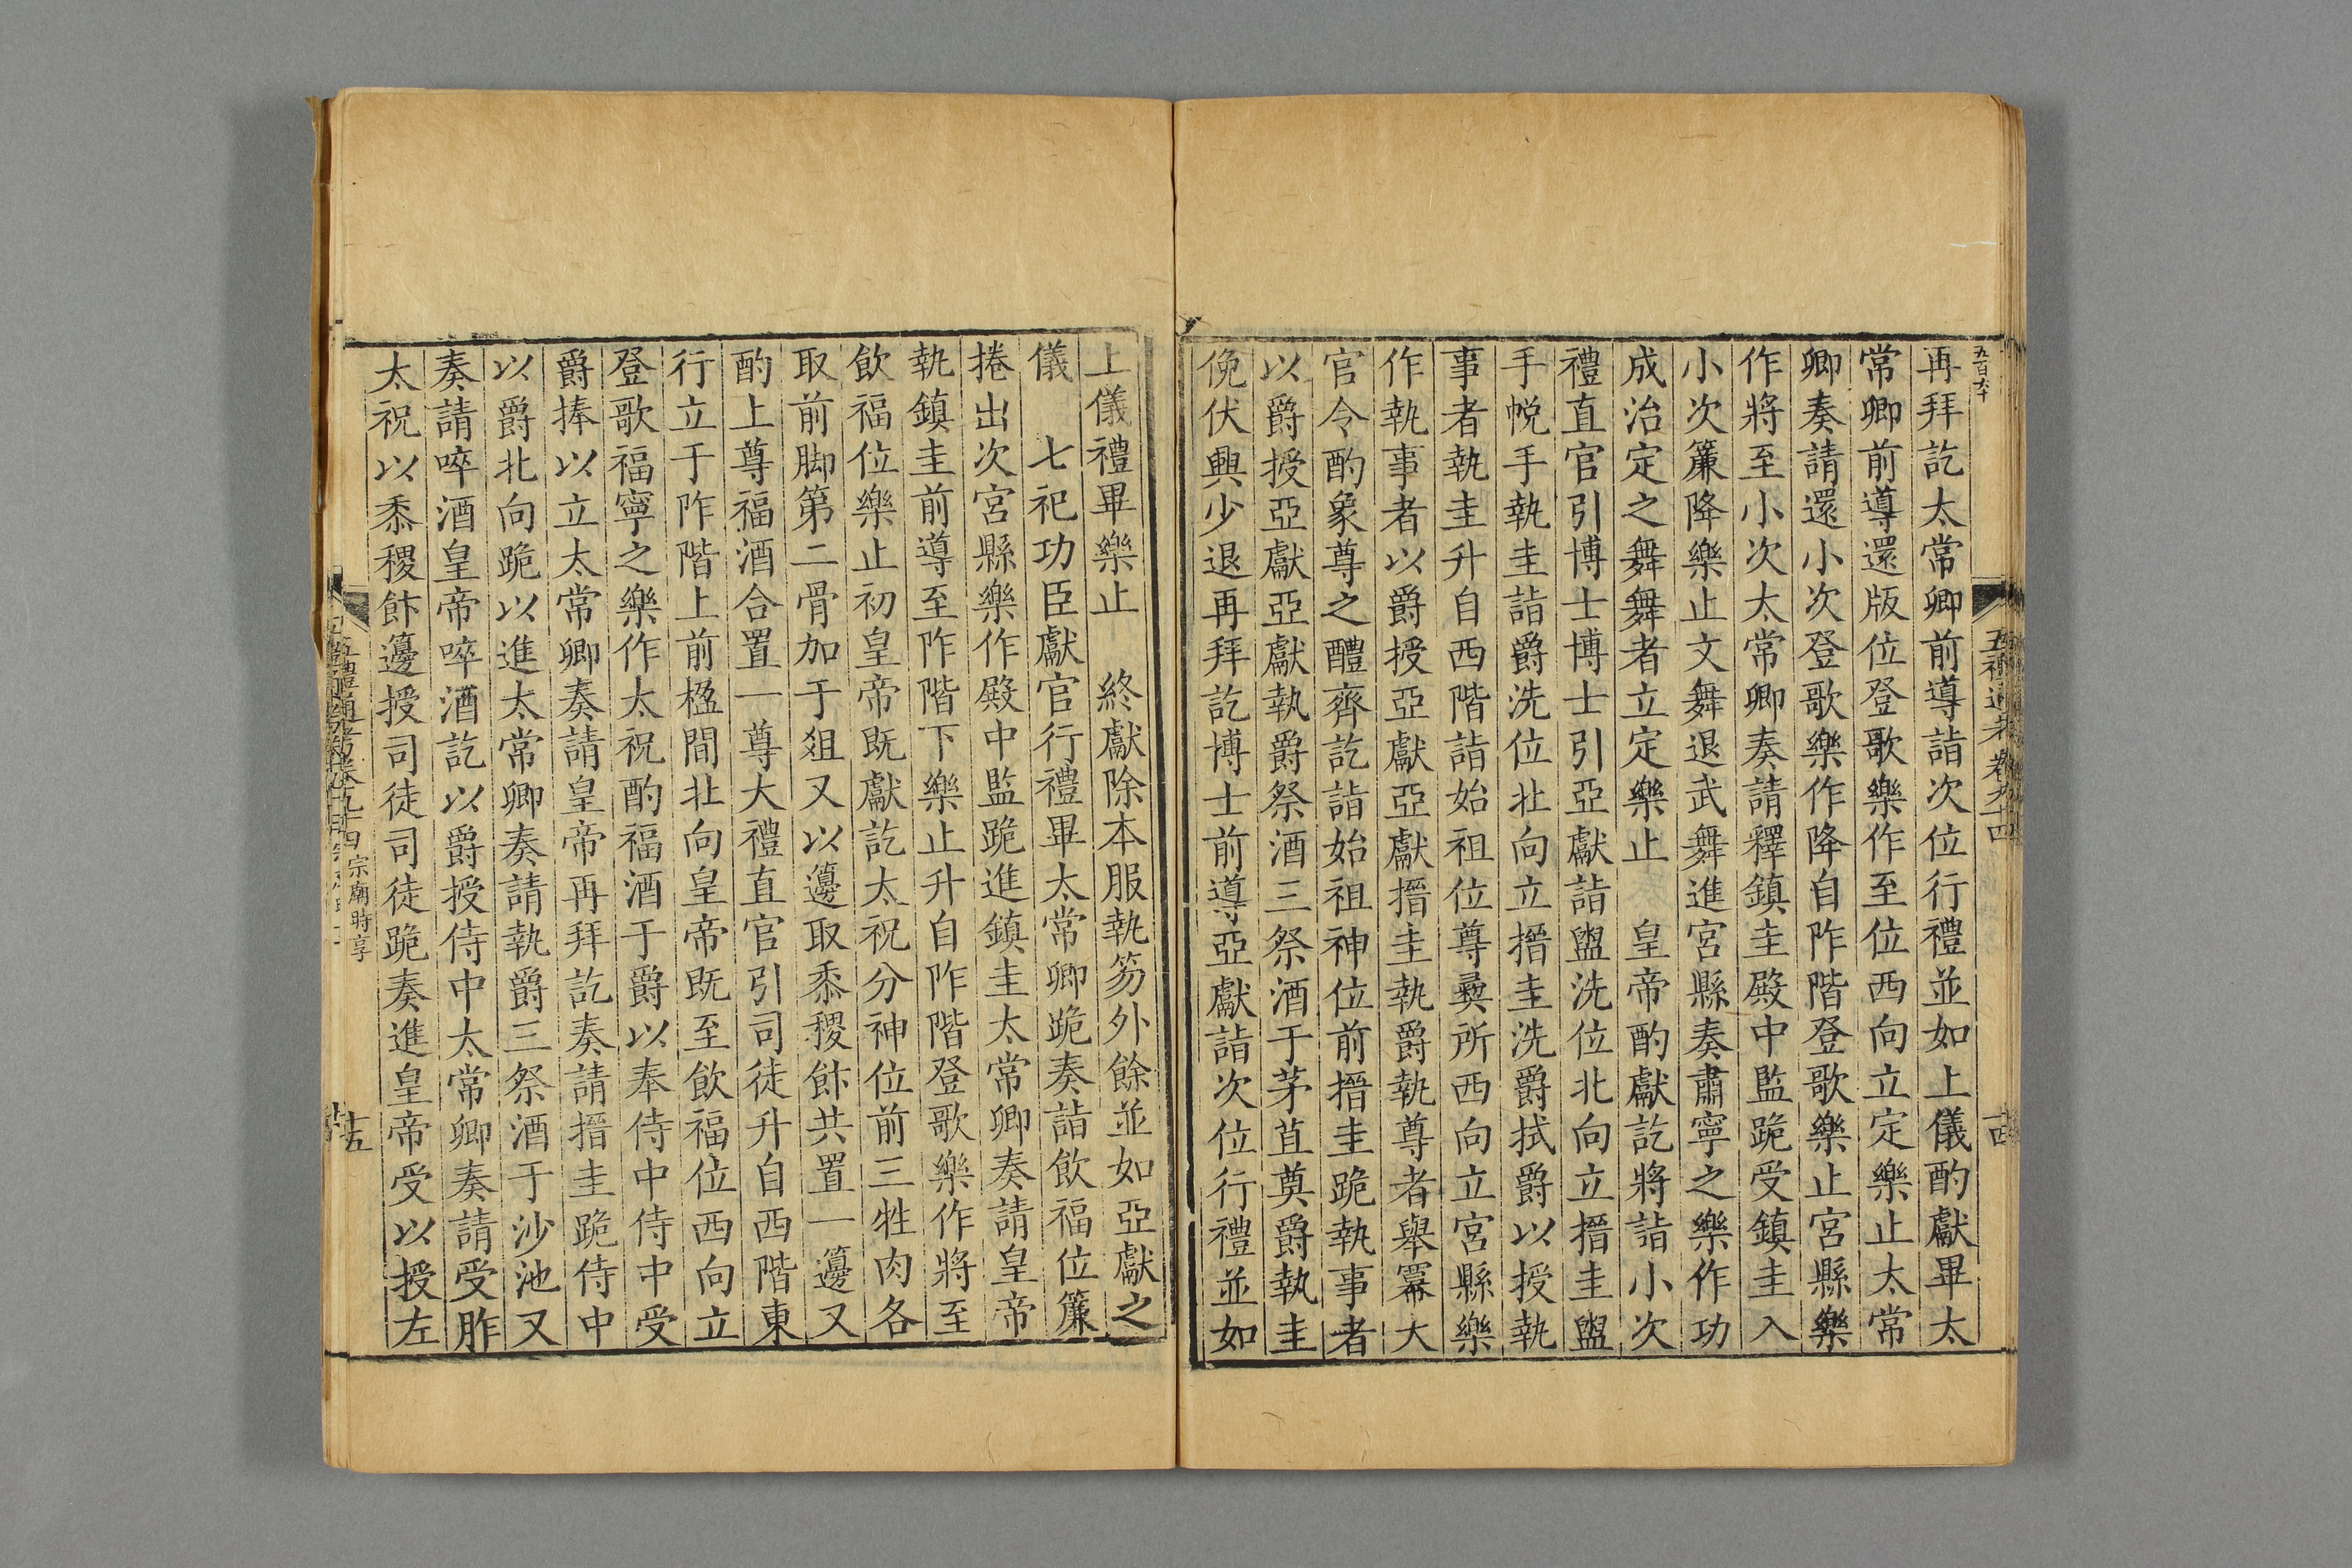 五百六十
五禮通考卷九十四
十四
再拜訖太常卿前導詣次位行禮並如上儀酌獻畢太
常卿前導還版位登歌樂作至位西向立定樂止太常
卿奏請還小次登歌樂作降自阼階登歌樂止宮縣樂
作將至小次太常卿奏請釋鎮圭殿中監跪受鎮圭入
小次簾降樂止文舞退武舞進宮縣奏肅寧之樂作功
成治定之舞舞者立定樂止　皇帝酌獻訖將詣小次
禮直官引博士博士引亞獻詣盥洗位北向立搢圭盥
手帨手執圭詣爵洗位北向立搢圭洗爵拭爵以授執
事者執圭升自西階詣始祖位尊彞所西向立宮縣樂
作執事者以爵授亞獻亞獻搢圭執爵執尊者舉冪大
官令酌象尊之醴齊訖詣始祖神位前搢圭跪執事者
以爵授亞獻亞獻執爵祭酒三祭酒于茅苴奠爵執圭
俛伏興少退再拜訖博士前導亞獻詣次位行禮並如
上儀禮畢樂止　終獻除本服執笏外餘並如亞獻之
儀　七祀功臣獻官行禮畢太常卿跪奏詣飲福位簾
捲出次宮縣樂作殿中監跪進鎮圭太常卿奏請皇帝
執鎮圭前導至阼階下樂止升自阼階登歌樂作將至
飲福位樂止初皇帝既獻訖太祝分神位前三牲肉各
取前脚第二骨加于俎又以籩取黍稷餅共置一籩又
酌上尊福酒合置一尊大禮直官引司徒升自西階東
行立于阼階上前楹間北向皇帝既至飲福位西向立
登歌福寧之樂作太祝酌福酒于爵以奉侍中侍中受
爵捧以立太常卿奏請皇帝再拜訖奏請搢圭跪侍中
以爵北向跪以進太常卿奏請執爵三祭酒于沙池又
奏請啐酒皇帝啐酒訖以爵授侍中太常卿奏請受胙
太祝以黍稷餅籩授司徒司徒跪奏進皇帝受以授左
五禮通考卷九十四　宗廟時享
十五